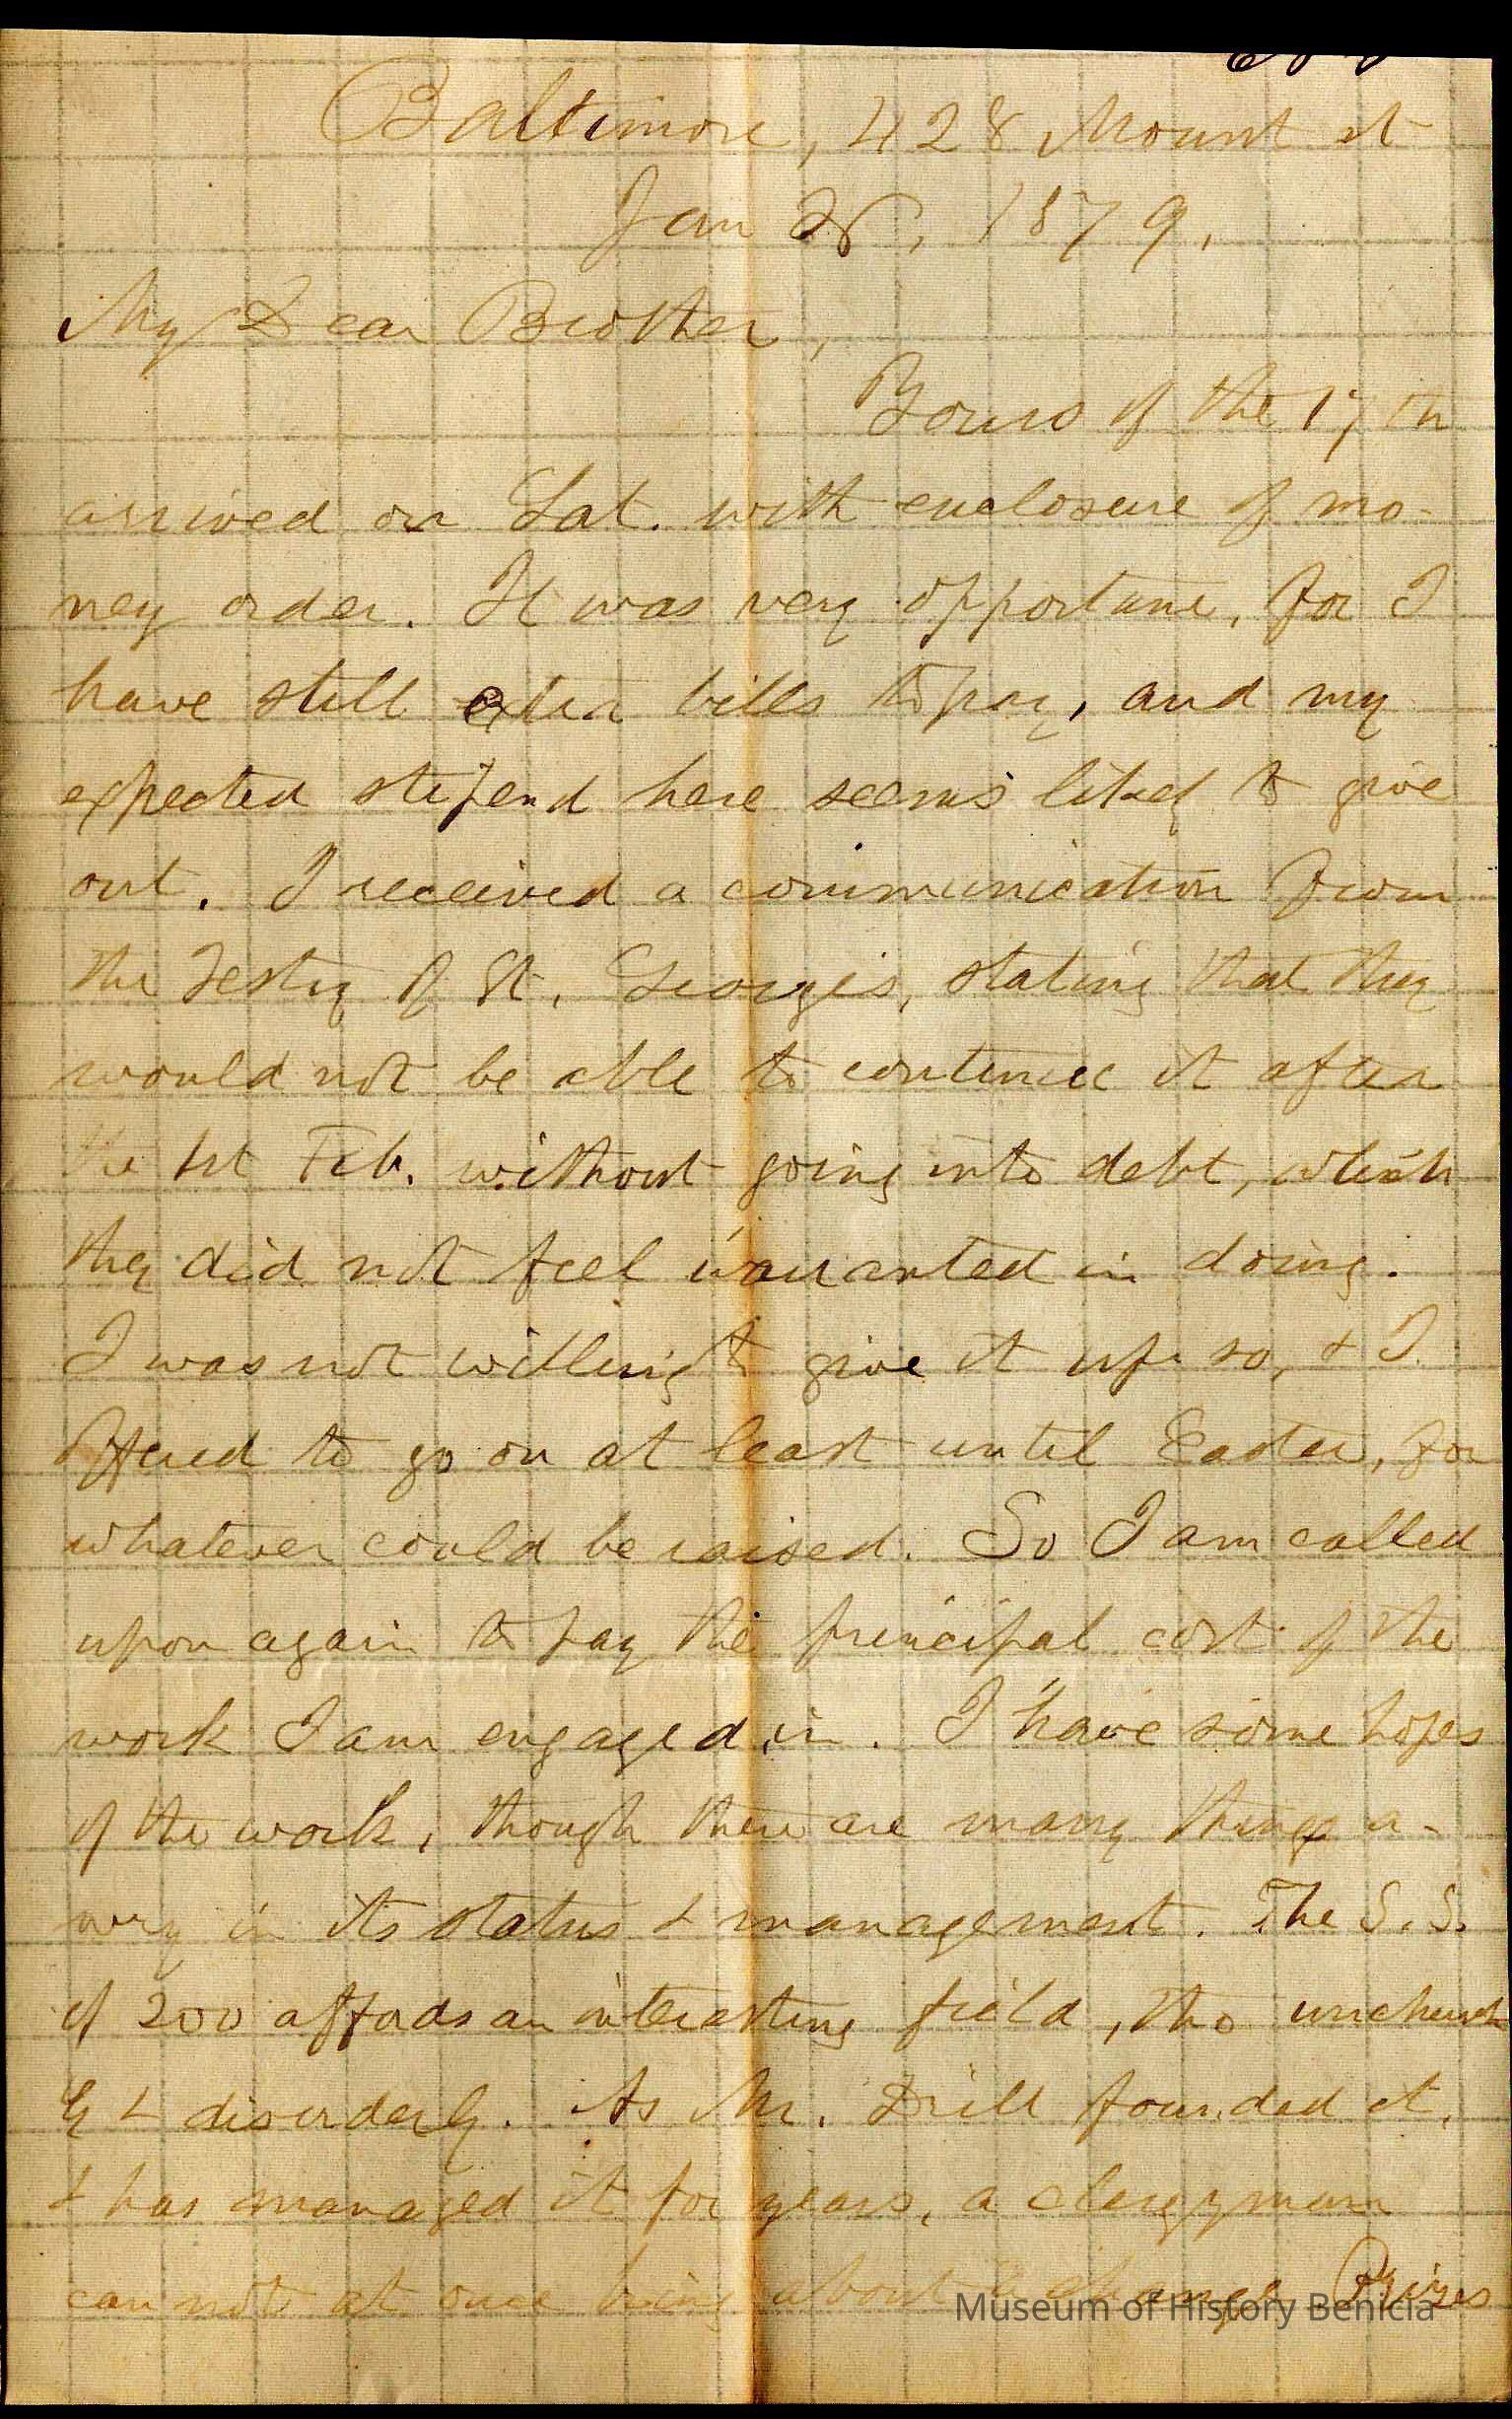 Baltimore, 428 Mount st
Jan 28, 1879.
My Dear Brother,
Yours of the 17th
arrived on Sat. with enclosure of mo-
ney order. It was very opportune, for I
have still extra bills to pay, and my
expected stipend here seems likely to give
out. I received a communication from
the Vestry of St. George's, stating that they
would not be able to continue it after
the 1st Feb. without going into debt, which
they did not feel warranted in doing.
I was not willing to give it up so, & I
offered to go on at least until Easter, for
whatever could be raised. So I am called
upon again to pay the principal cost of the
work I am engaged in. I have some hopes
of the work, though there are many things a-
wry in its status & management. The S. S.
of 200 affords an interesting field, tho unchurch
ly & disorderly. As Mr. Drill founded it,
& has managed it for years, a clergyman
can not at once bring about a change. Prizes
Museum of History Benicia